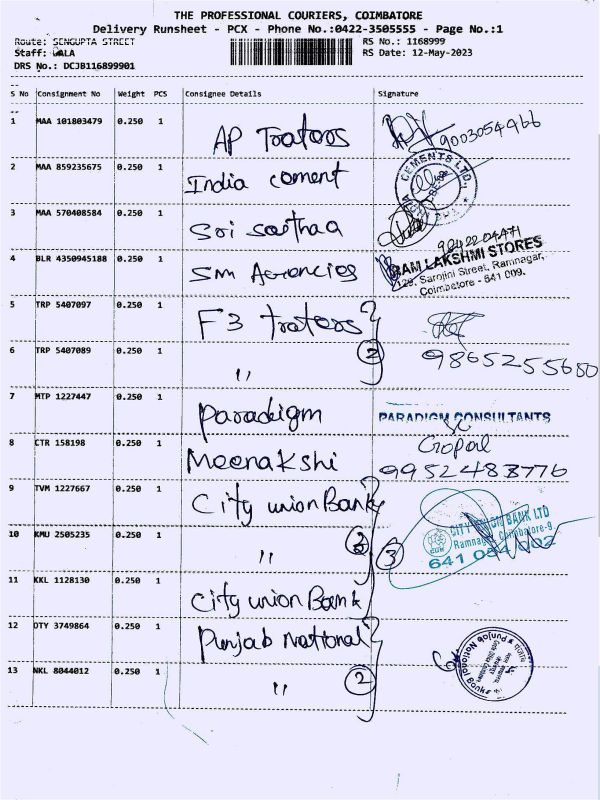 THE PROFESSIONAL COURIERS, COIMBATORE
Delivery Runsheet - PCX - Phone No.:0422-3505555 - Page No.:1
Route: SENGUPTA STREET RS No.: 1168999
Staff: BALA RS Date: 12-May-2023
DRS No.: DCJB116899901
S No Consignment No Weight PCS Consignee Details Signature
1 MAA 101803479 0.250 1 AP Traters 9003054966
2 MAA 859235675 0.250 1 India coment CEMENTS LTD.,
3 MAA 570408584 0.250 1 Sri Sasthaa
4 BLR 4350945188 0.250 1 Sm Agencies RAM LAKSHMI STORES
129, Sarojini Street, Ramnagar,
Coimbatore - 641 009.
5 TRP 5407097 0.250 1 F3 traters
6 TRP 5407089 0.250 1 " 2 9865255680
7 MTP 1227447 0.250 1 Paradigm PARADIGM CONSULTANTS
8 CTR 158198 0.250 1 Meenakshi Gopal
9952483776
9 TVM 1227667 0.250 1 City union Bank CITY UNION BANK LTD
Ramnagar Coimbatore-9
10 KMU 2505235 0.250 1 " 3 641
11 KKL 1128130 0.250 1 City union Bank
12 OTY 3749864 0.250 1 Punjab National Punjab National Bank
13 NKL 8044012 0.250 1 " 2